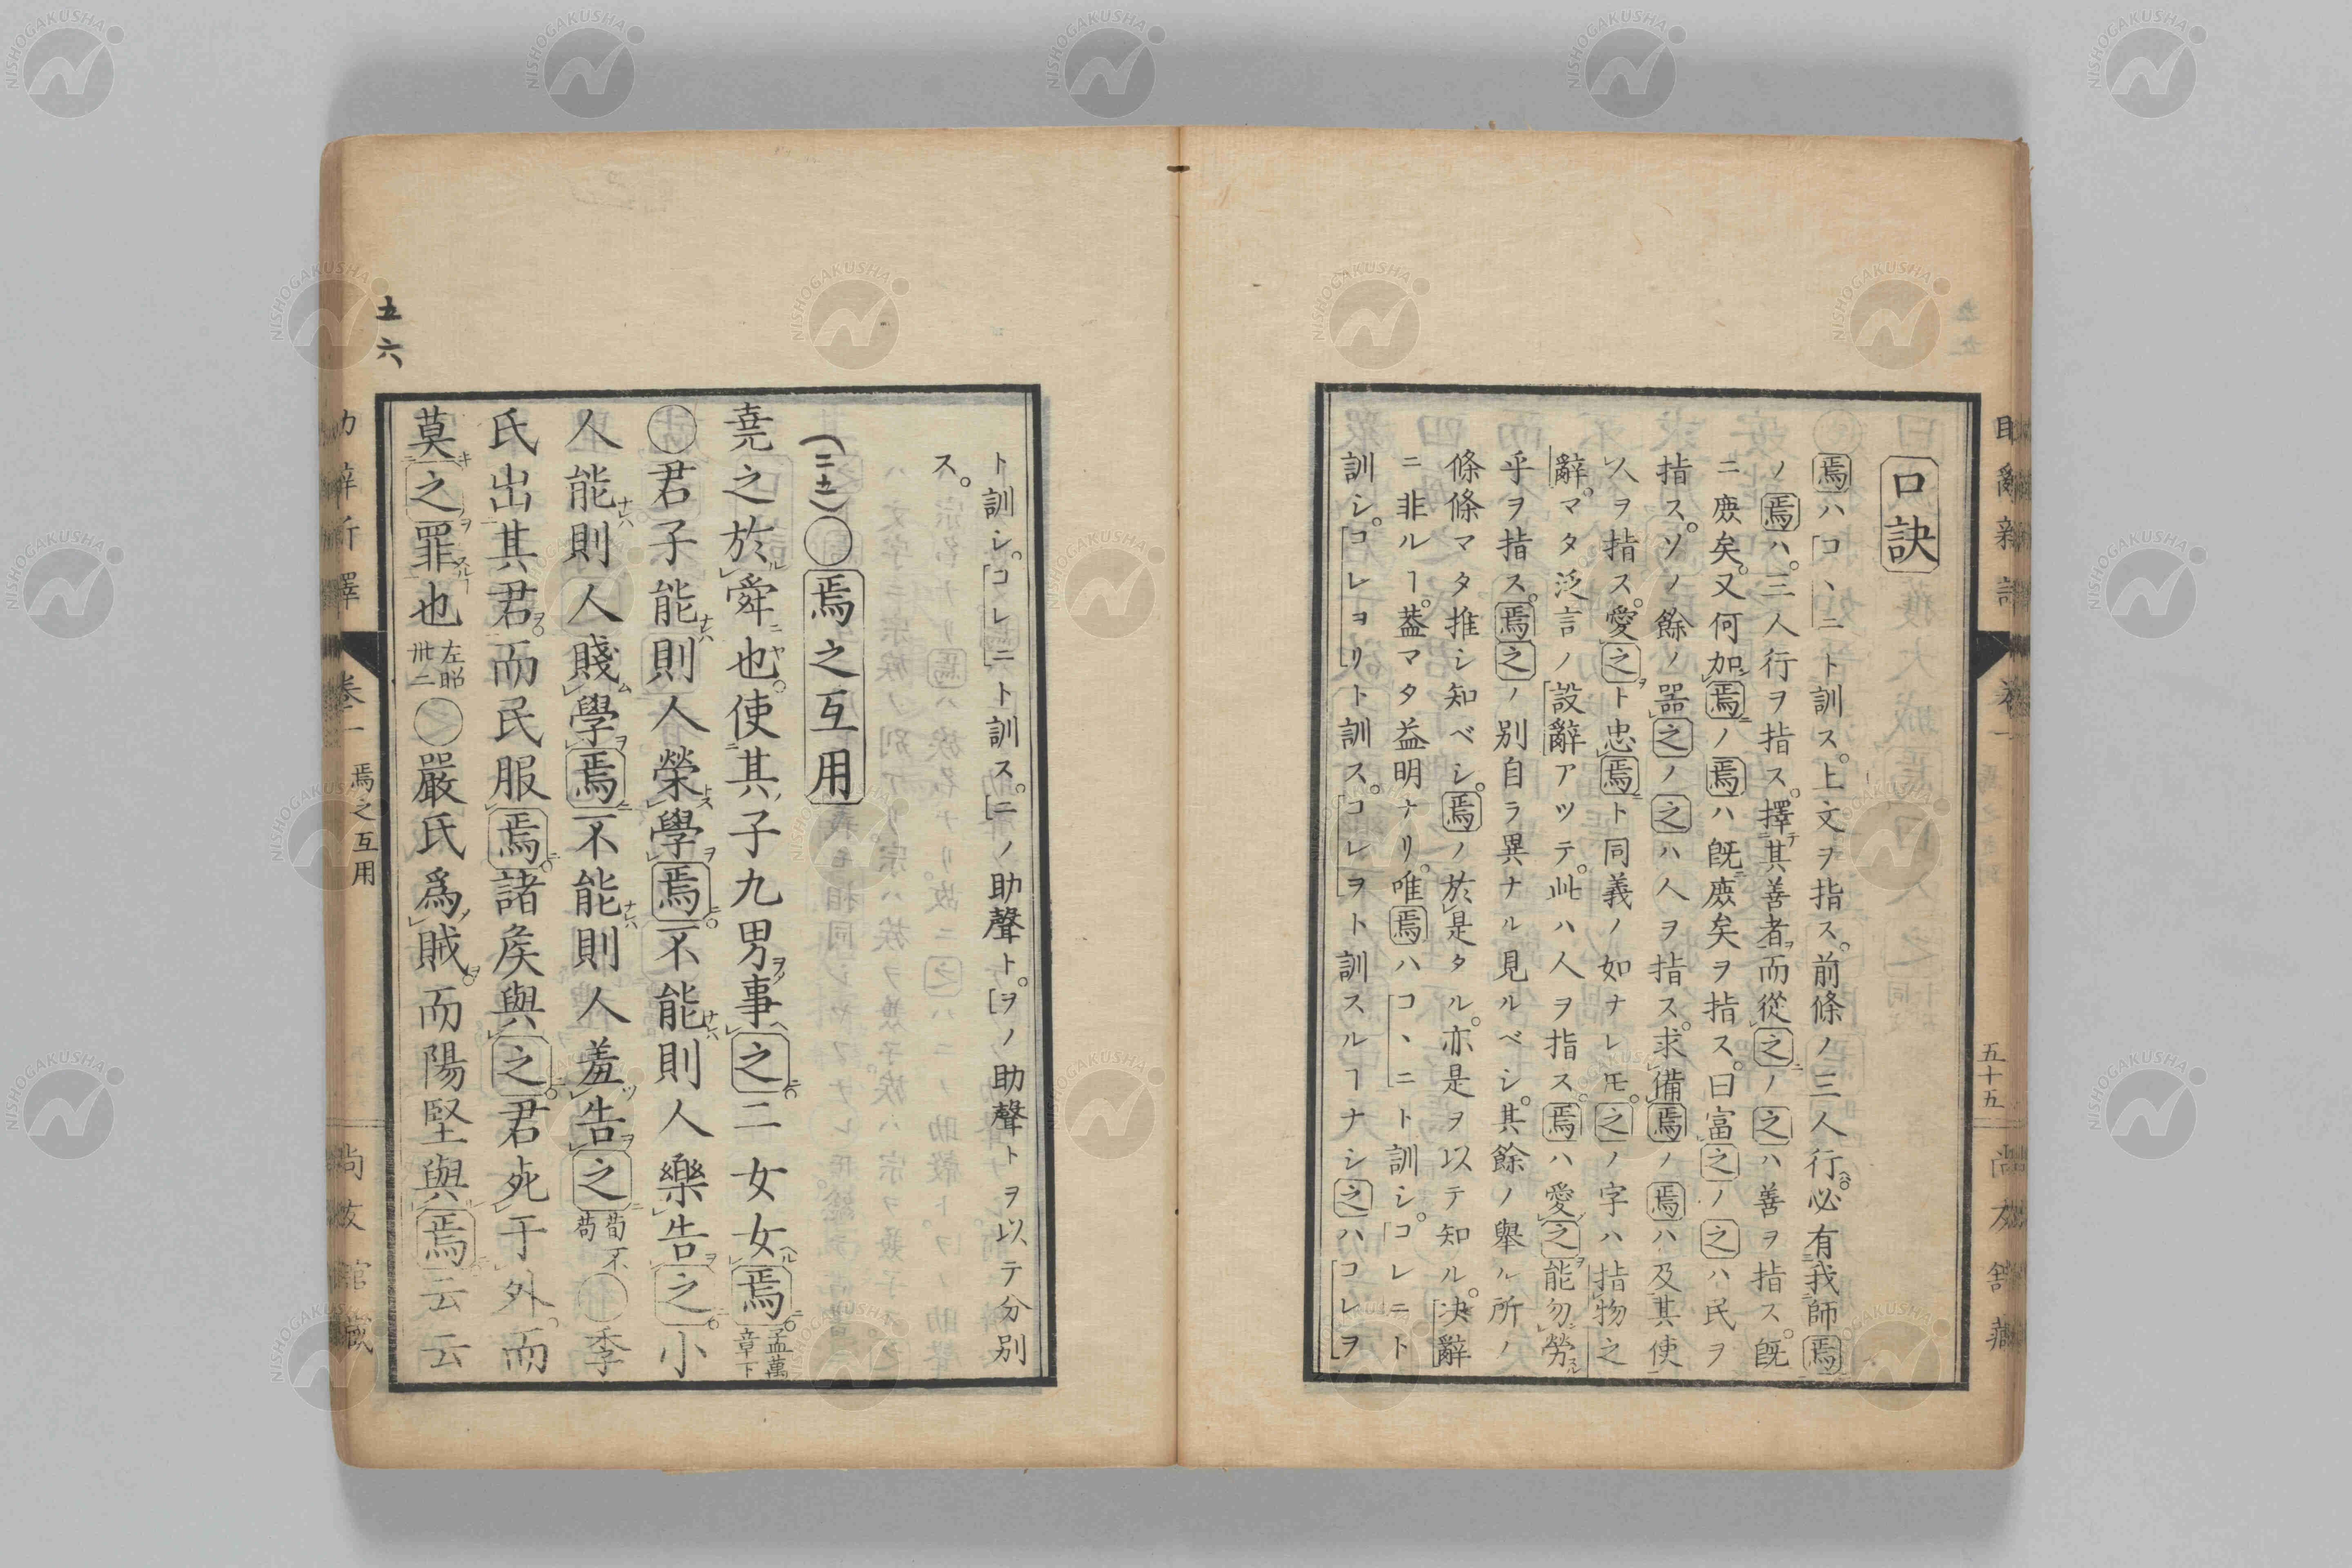 口訣
焉ハコヽニト訓ス。上文ヲ指ス。前條ノ三人行。必有我師焉
ノ焉ハ。三人行ヲ指ス。擇其善者而從之ノ之ハ善ヲ指ス。既
ニ庶矣。又何加焉ノ焉ハ既庶矣ヲ指ス。曰富之ノ之ハ民ヲ
指ス。ソノ餘ノ噐之ノ之ハ人ヲ指ス。求備焉ノ焉ハ及其使
人ヲ指ス。愛之ト忠焉ト同義ノ如ナレ𪜈。之ノ字ハ指物之
辭。マタ泛言ノ設辭アツテ。此ハ人ヲ指ス。焉ハ愛之能勿勞
乎ヲ指ス。焉之ノ別自ラ異ナル見ルベシ。其餘ノ舉ル所ノ
條條マタ推シ知ベシ。焉ノ於是タル。亦是ヲ以テ知ル。决辭
ニ非ルヿ。葢マタ益明ナリ。唯焉ハコヽニト訓シ。コレニト
訓シ。コレヨリト訓ス。コレヲト訓スルヿナシ之ハコレヲ
五十五
ト訓シ。コレニト訓ス。ニノ助聲ト。ヲノ助聲トヲ以テ分別
ス。
(二五)〇焉之互用
堯之於舜也。使其子九男事之。二女女焉。孟萬章下
〇君子能則人榮學焉。不能則人樂告之。小
人能則人賤學焉不能則人羞告之荀不苟〇季
氏出其君。而民服焉。諸矦與之。君死于外。而
莫之罪也左昭卅二〇嚴氏爲賊。而陽堅與焉云云
五六
卷一
焉之互用